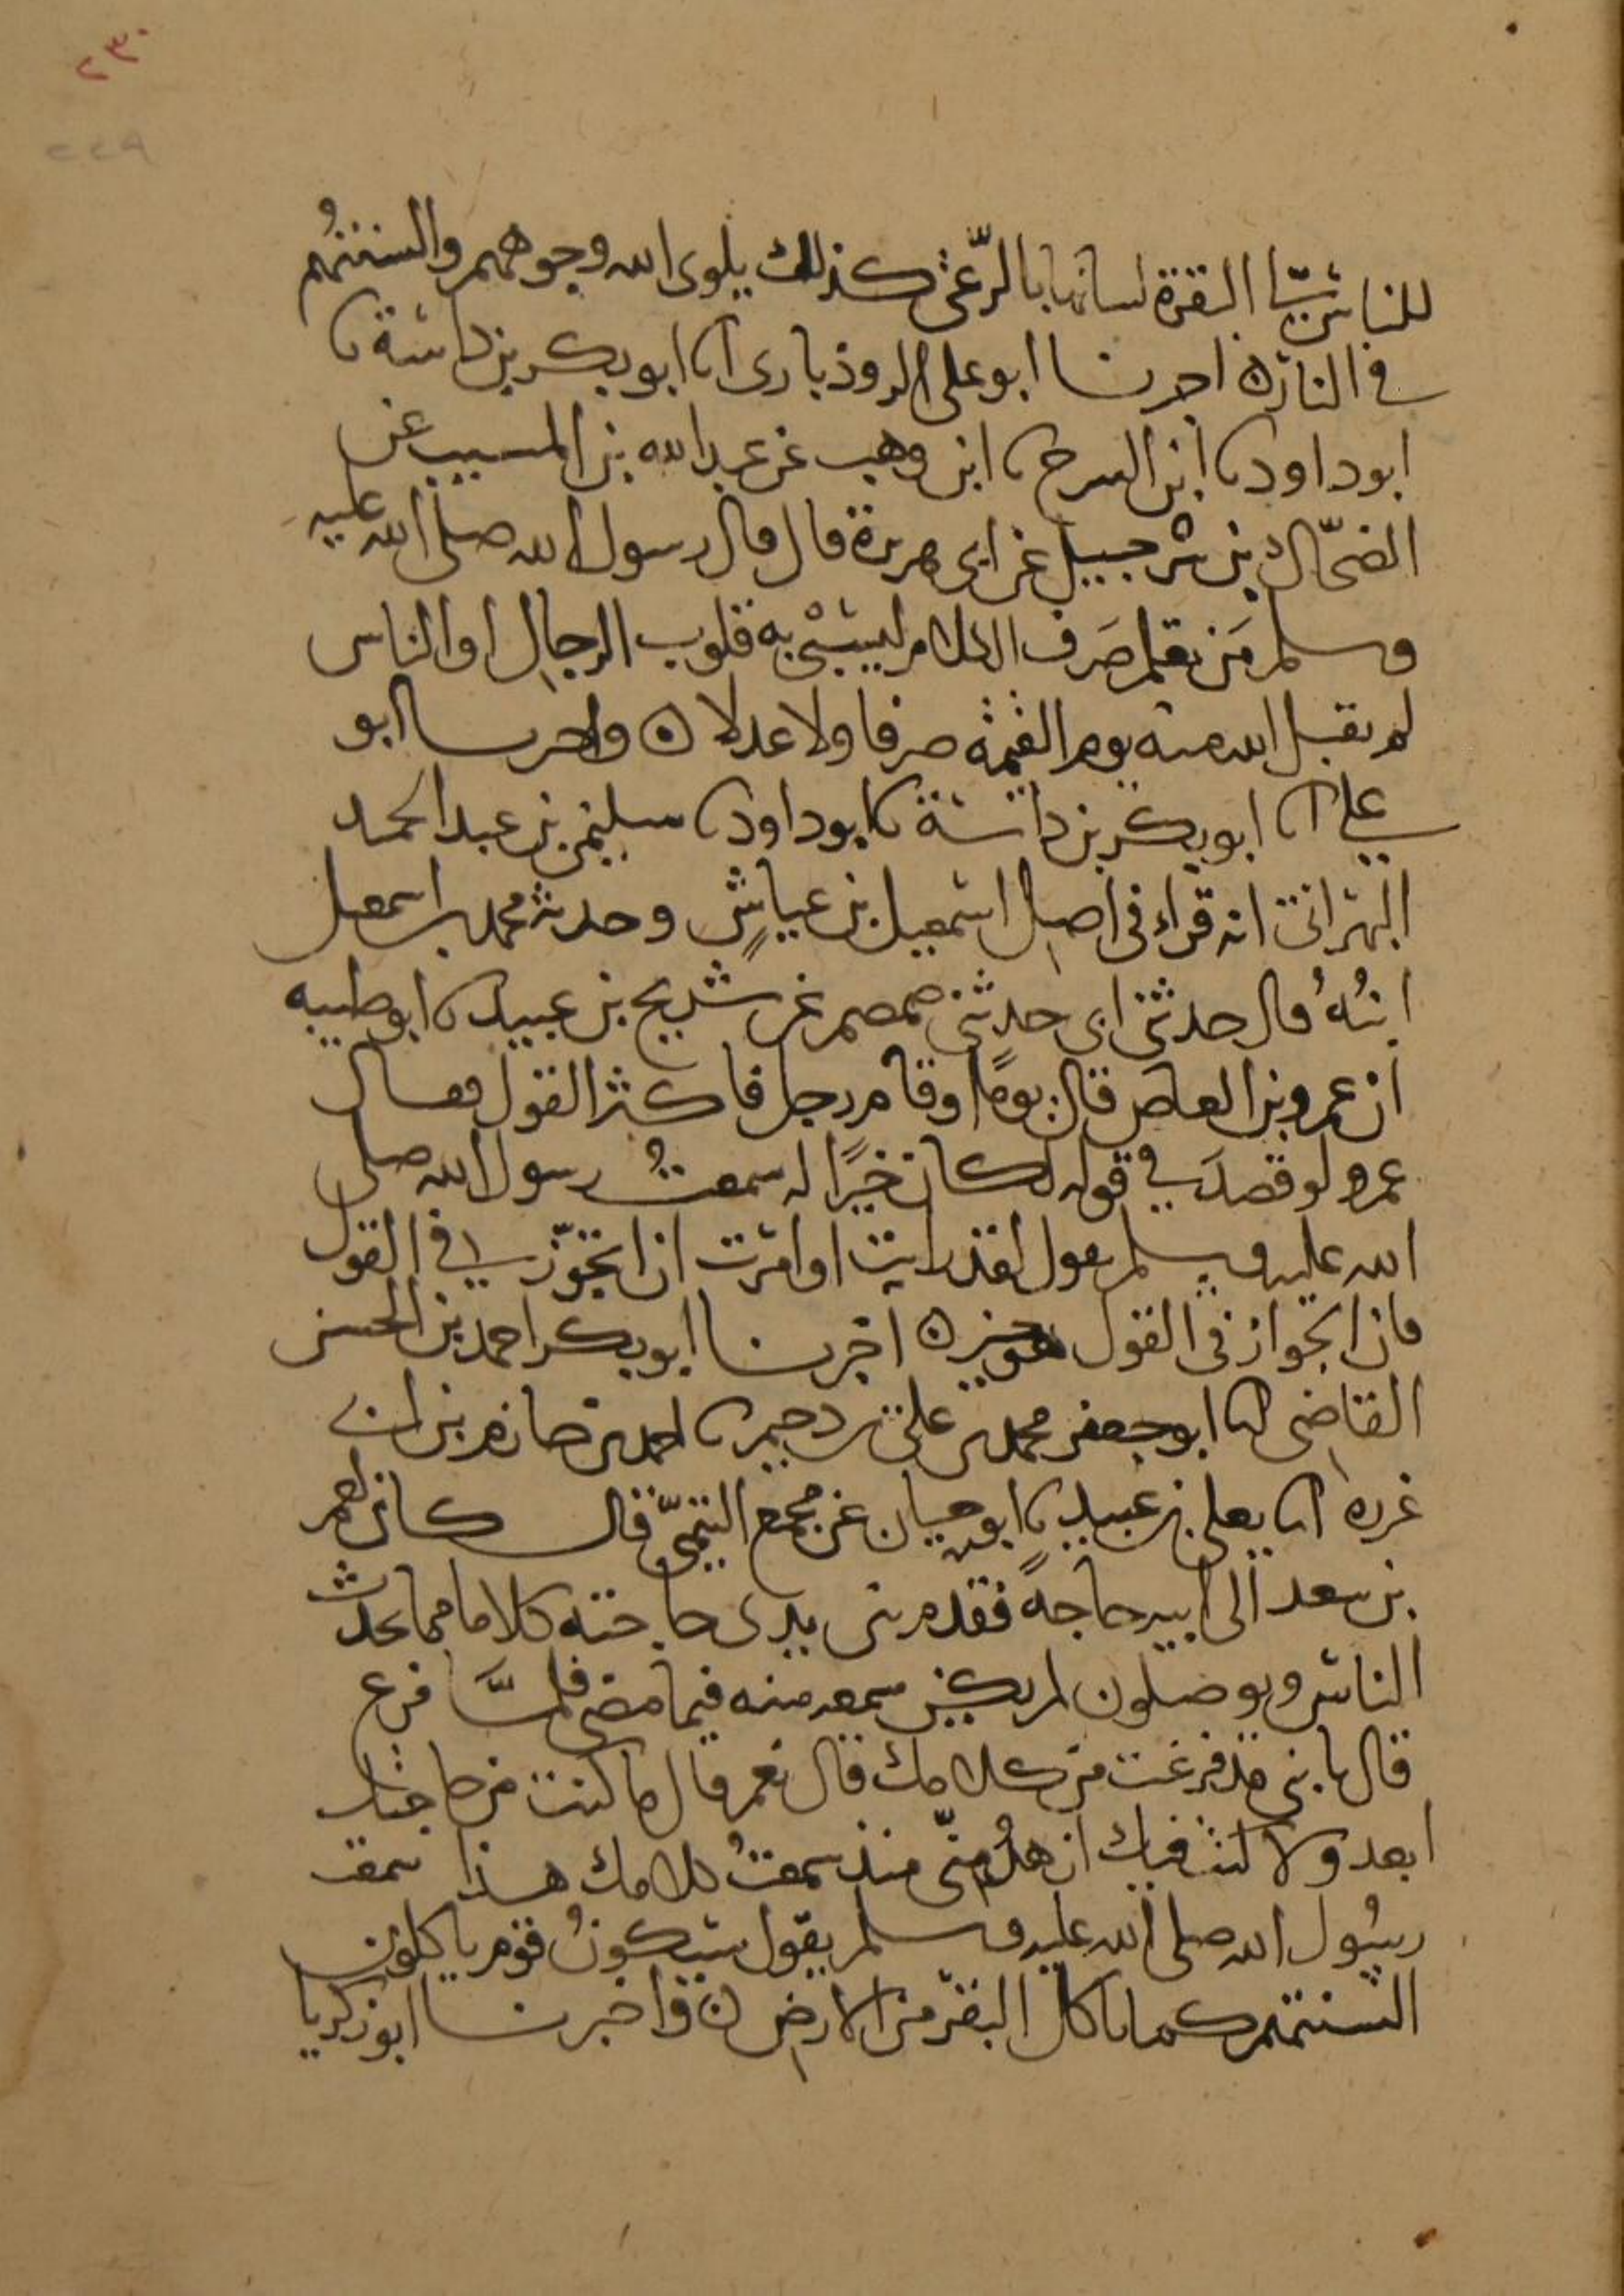 ٢٣٠
٢٢٩
للناس لىّ البقرة لسانها بالرّعى كذلك يلوى الله وجوههم والسنتهم
فى النار ه اخبرنا ابو على الروذبارى انا ابو بكر بن داسة نا
ابو داود نا ابن السرح نا ابن وهب عن عبد الله بن المسيب عن
الضحّاك بن شرحبيل عن ابى هريرة قال قال رسول الله صلى الله عليه
وسلم مَن تعلم صَرف الكلام ليسبى به قلوب الرجال او الناس
لم يقبل الله منه يوم القيمة صرفا ولا عدلا ه واخبرنا ابو
على انا ابو بكر بن داسة نا ابو داود نا سليمن بن عبد الحميد
البهرانى انه قراء فى اصل اسمعيل بن عياشٍ وحدثه محمد بن اسمعيل
ابنُهُ قال حدثنى ابى حدثنى ضمضم عن شريح بن عبيد نا ابو ظبيه
ان عمرو بن العاص قال يومًا وقام رجل فاكثر القول فقال
عمرو لو قصدَ فى قوله لكان خيرًا له سمعتُ رسول الله صلى
الله عليه وسلم يقول لقد رايت او امرت ان اتجوّز فى القول
فان الجواز فى القول هو خير ه اخبرنا ابو بكر احمد بن الحسن
القاضى انا ابو جعفر محمد بن على بن دحيم نا احمد بن حازم بن ابى
غرزه انا يعلى بن عبيد نا ابو حيان عن مجمع التيمىّ قال كان لعمر
بن سعد الى ابيه حاجة فقدم بين يدى حاجته كلاما مما يحدث
الناس ويوصلون لم يكن سمعه منه فيما مضى فلمَّا فرغ
قال يا بنى قد فرغت من كلامك قال نعم قال ما كنت من حاجتك
ابعد ولا كنت فيك ازهدُ منّى منذ سمعتُ كلامك هذا سمعت
رسُول الله صلى الله عليه وسلم يقول سيكونُ قوم ياكلون
بالسنتهم كما تاكل البقر من الارض ه واخبرنا ابو زكريا